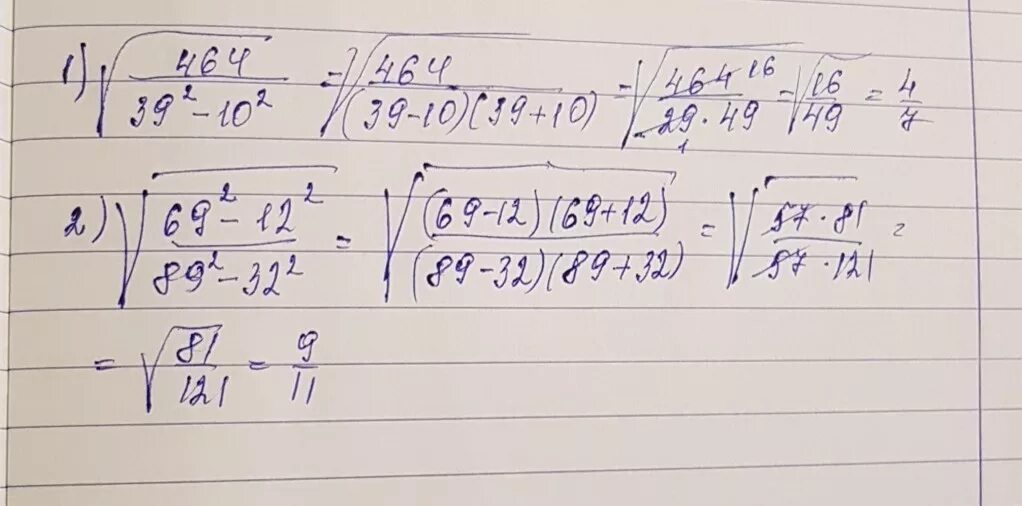 1) √(464/(39² - 10²)) = √(464/((39-10)(39+10))) = √(464 16/(29 1 · 49)) = √(16/49) = 4/7
2) √((69² - 12²)/(89² - 32²)) = √((69-12)(69+12)/((89-32)(89+32))) = √(57 · 81/(57 · 121)) =
= √(81/121) = 9/11